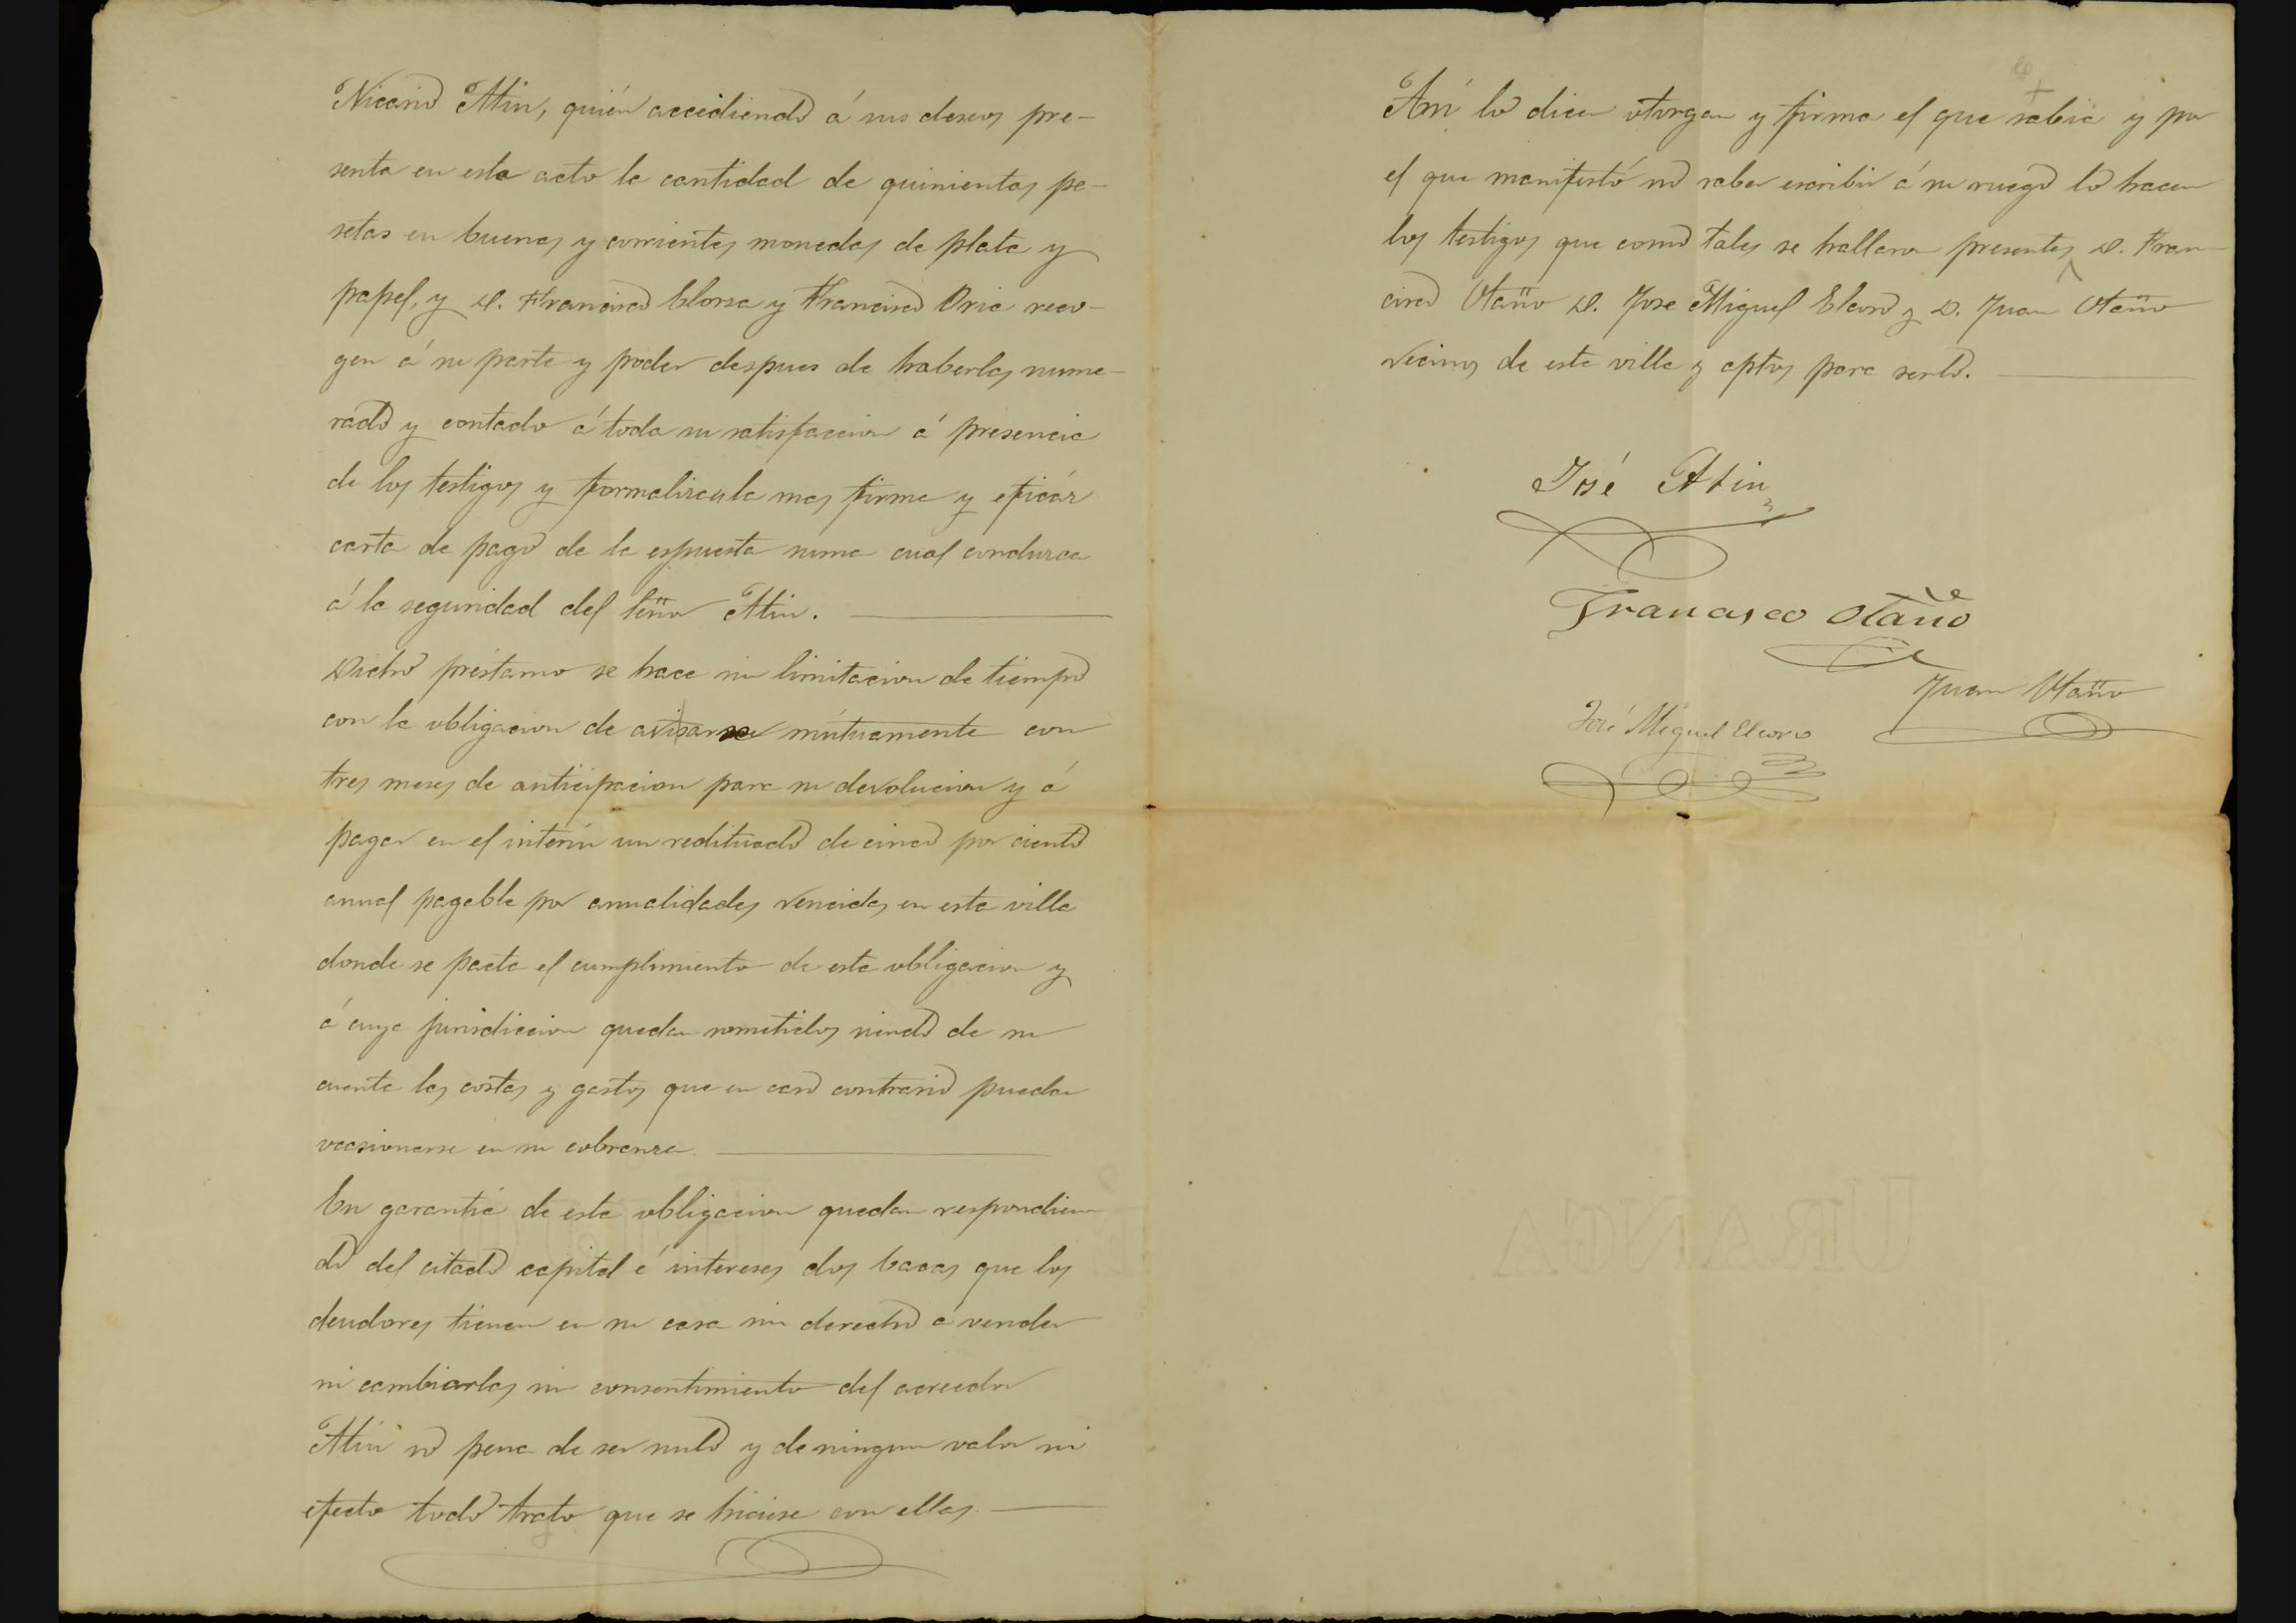 Nicasio Atin, quién accediendo á sus deseos pre-
senta en este acto la cantidad de quinientas pe-
setas en buenas y corrientes monedas de plata y
papel, y D. Francisco Elorza y Francisco Oria reco-
gen á su parte y poder despues de haberlas nume-
rado y contado á toda su satisfaccion á presencia
de los testigos y formalizan la mas firme y eficáz
carta de pago de la espuesta suma cual conduzca
á la seguridad del Señor Atin.
Dicho préstamo se hace sin limitacion de tiempo
con la obligacion de avisarse mútuamente con
tres meses de anticipacion para su devolucion y á
pagar en el interin un redituado de cinco por ciento
anual pagable por anualidades vencidas en esta villa
donde se pacta el cumplimiento de esta obligacion y
á cuya jurisdiccion quedan sometidos siendo de su
cuenta las costas y gastos que en caso contrario puedan
ocasionarse en su cobranza.
En garantia de esta obligacion quedan respondien
do del citado capital é intereses dos bacas que los
deudores tienen en su casa sin derecho á vender
ni cambiarlas sin consentimiento del acreedor
Atin so pena de ser nulo y de ningun valor ni
efecto todo trato que se hiciese con ellas.
Así lo dicen otorgan y firma el que sabia y por
el que manifestó no saber escribir á su ruego lo hacen
los testigos que como tales se hallaron presentes D. Fran
cisco Otaño D. Jose Miguel Elcoro y D. Juan Otaño
vecinos de esta villa y aptos para serlo.
José Atin
Francisco Otaño
Juan Otaño
José Miguel Elcoro
URANGA